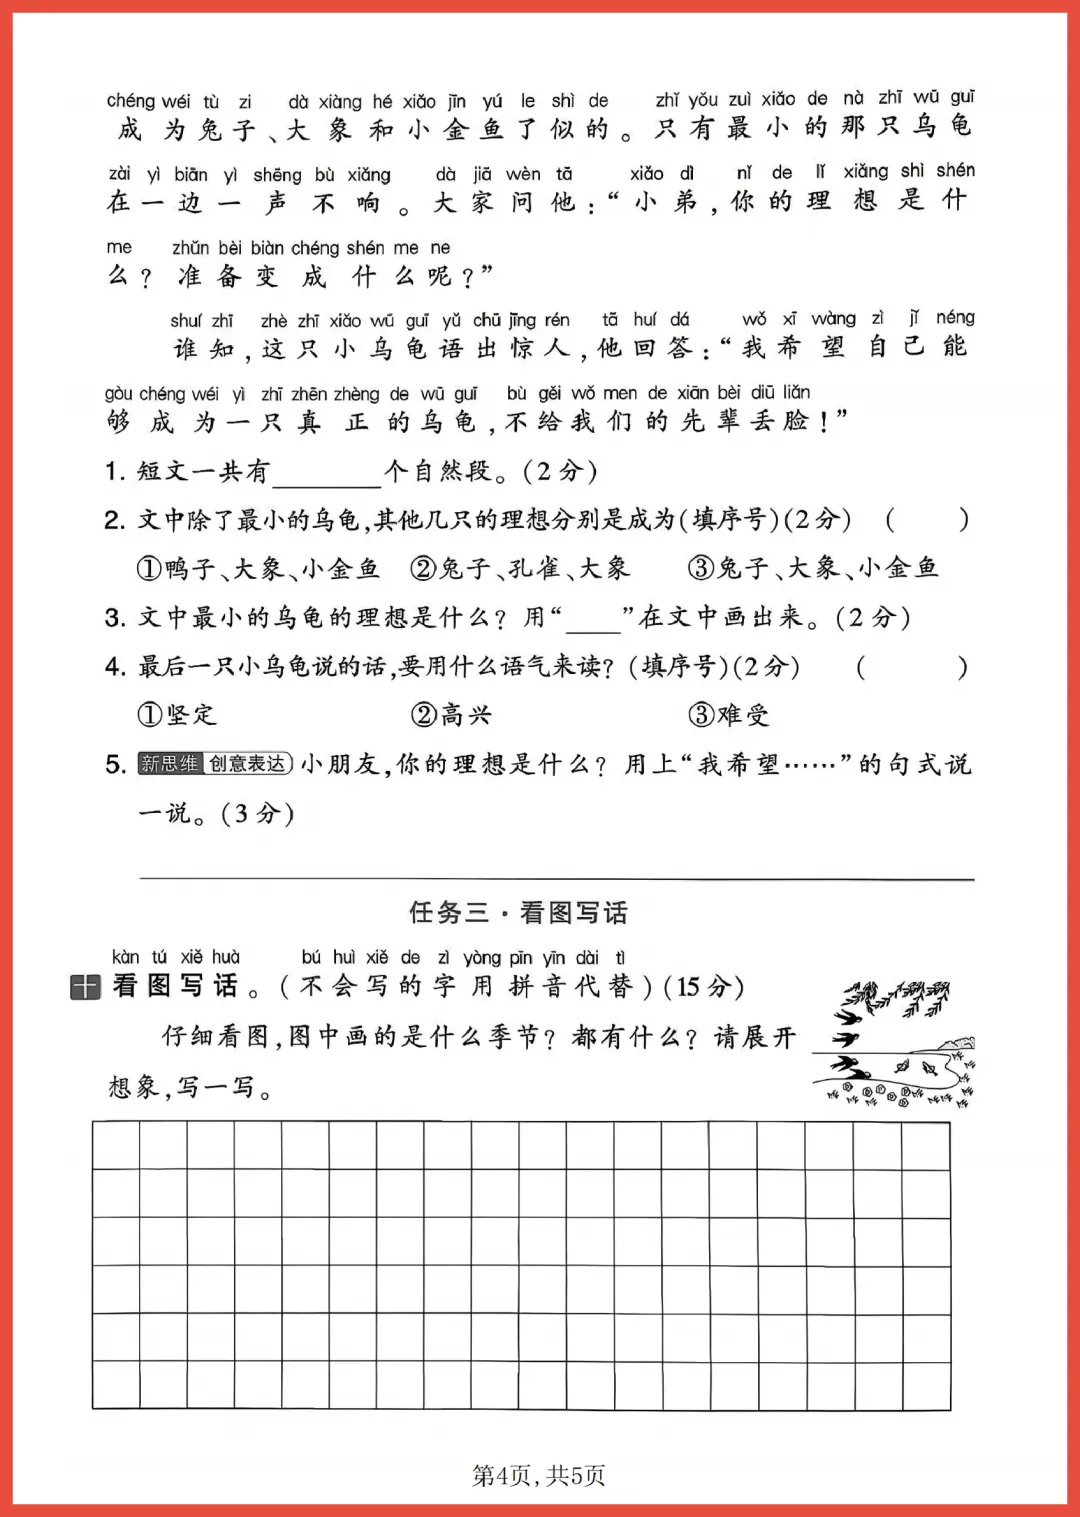 chéng wéi tù zi dà xiàng hé xiǎo jīn yú le shì de zhǐ yǒu zuì xiǎo de nà zhī wū guī
成为兔子、大象和小金鱼了似的。只有最小的那只乌龟
zài yì biān yì shēng bù xiǎng dà jiā wèn tā xiǎo dì nǐ de lǐ xiǎng shì shén
在一边一声不响。大家问他:“小弟,你的理想是什
me zhǔn bèi biàn chéng shén me ne
么?准备变成什么呢?”
shuí zhī zhè zhī xiǎo wū guī yǔ chū jīng rén tā huí dá wǒ xī wàng zì jǐ néng
谁知,这只小乌龟语出惊人,他回答:“我希望自己能
gòu chéng wéi yì zhī zhēn zhèng de wū guī bù gěi wǒ men de xiān bèi diū liǎn
够成为一只真正的乌龟,不给我们的先辈丢脸!”
1. 短文一共有________个自然段。(2分)
2. 文中除了最小的乌龟,其他几只的理想分别是成为(填序号)(2分) (    )
①鸭子、大象、小金鱼 ②兔子、孔雀、大象 ③兔子、大象、小金鱼
3. 文中最小的乌龟的理想是什么?用“____”在文中画出来。(2分)
4. 最后一只小乌龟说的话,要用什么语气来读?(填序号)(2分) (    )
①坚定 ②高兴 ③难受
5. 新思维 创意表达 小朋友,你的理想是什么?用上“我希望……”的句式说
一说。(3分)
任务三·看图写话
kàn tú xiě huà bú huì xiě de zì yòng pīn yīn dài tì
十 看图写话。(不会写的字用拼音代替)(15分)
仔细看图,图中画的是什么季节?都有什么?请展开
想象,写一写。
第4页,共5页